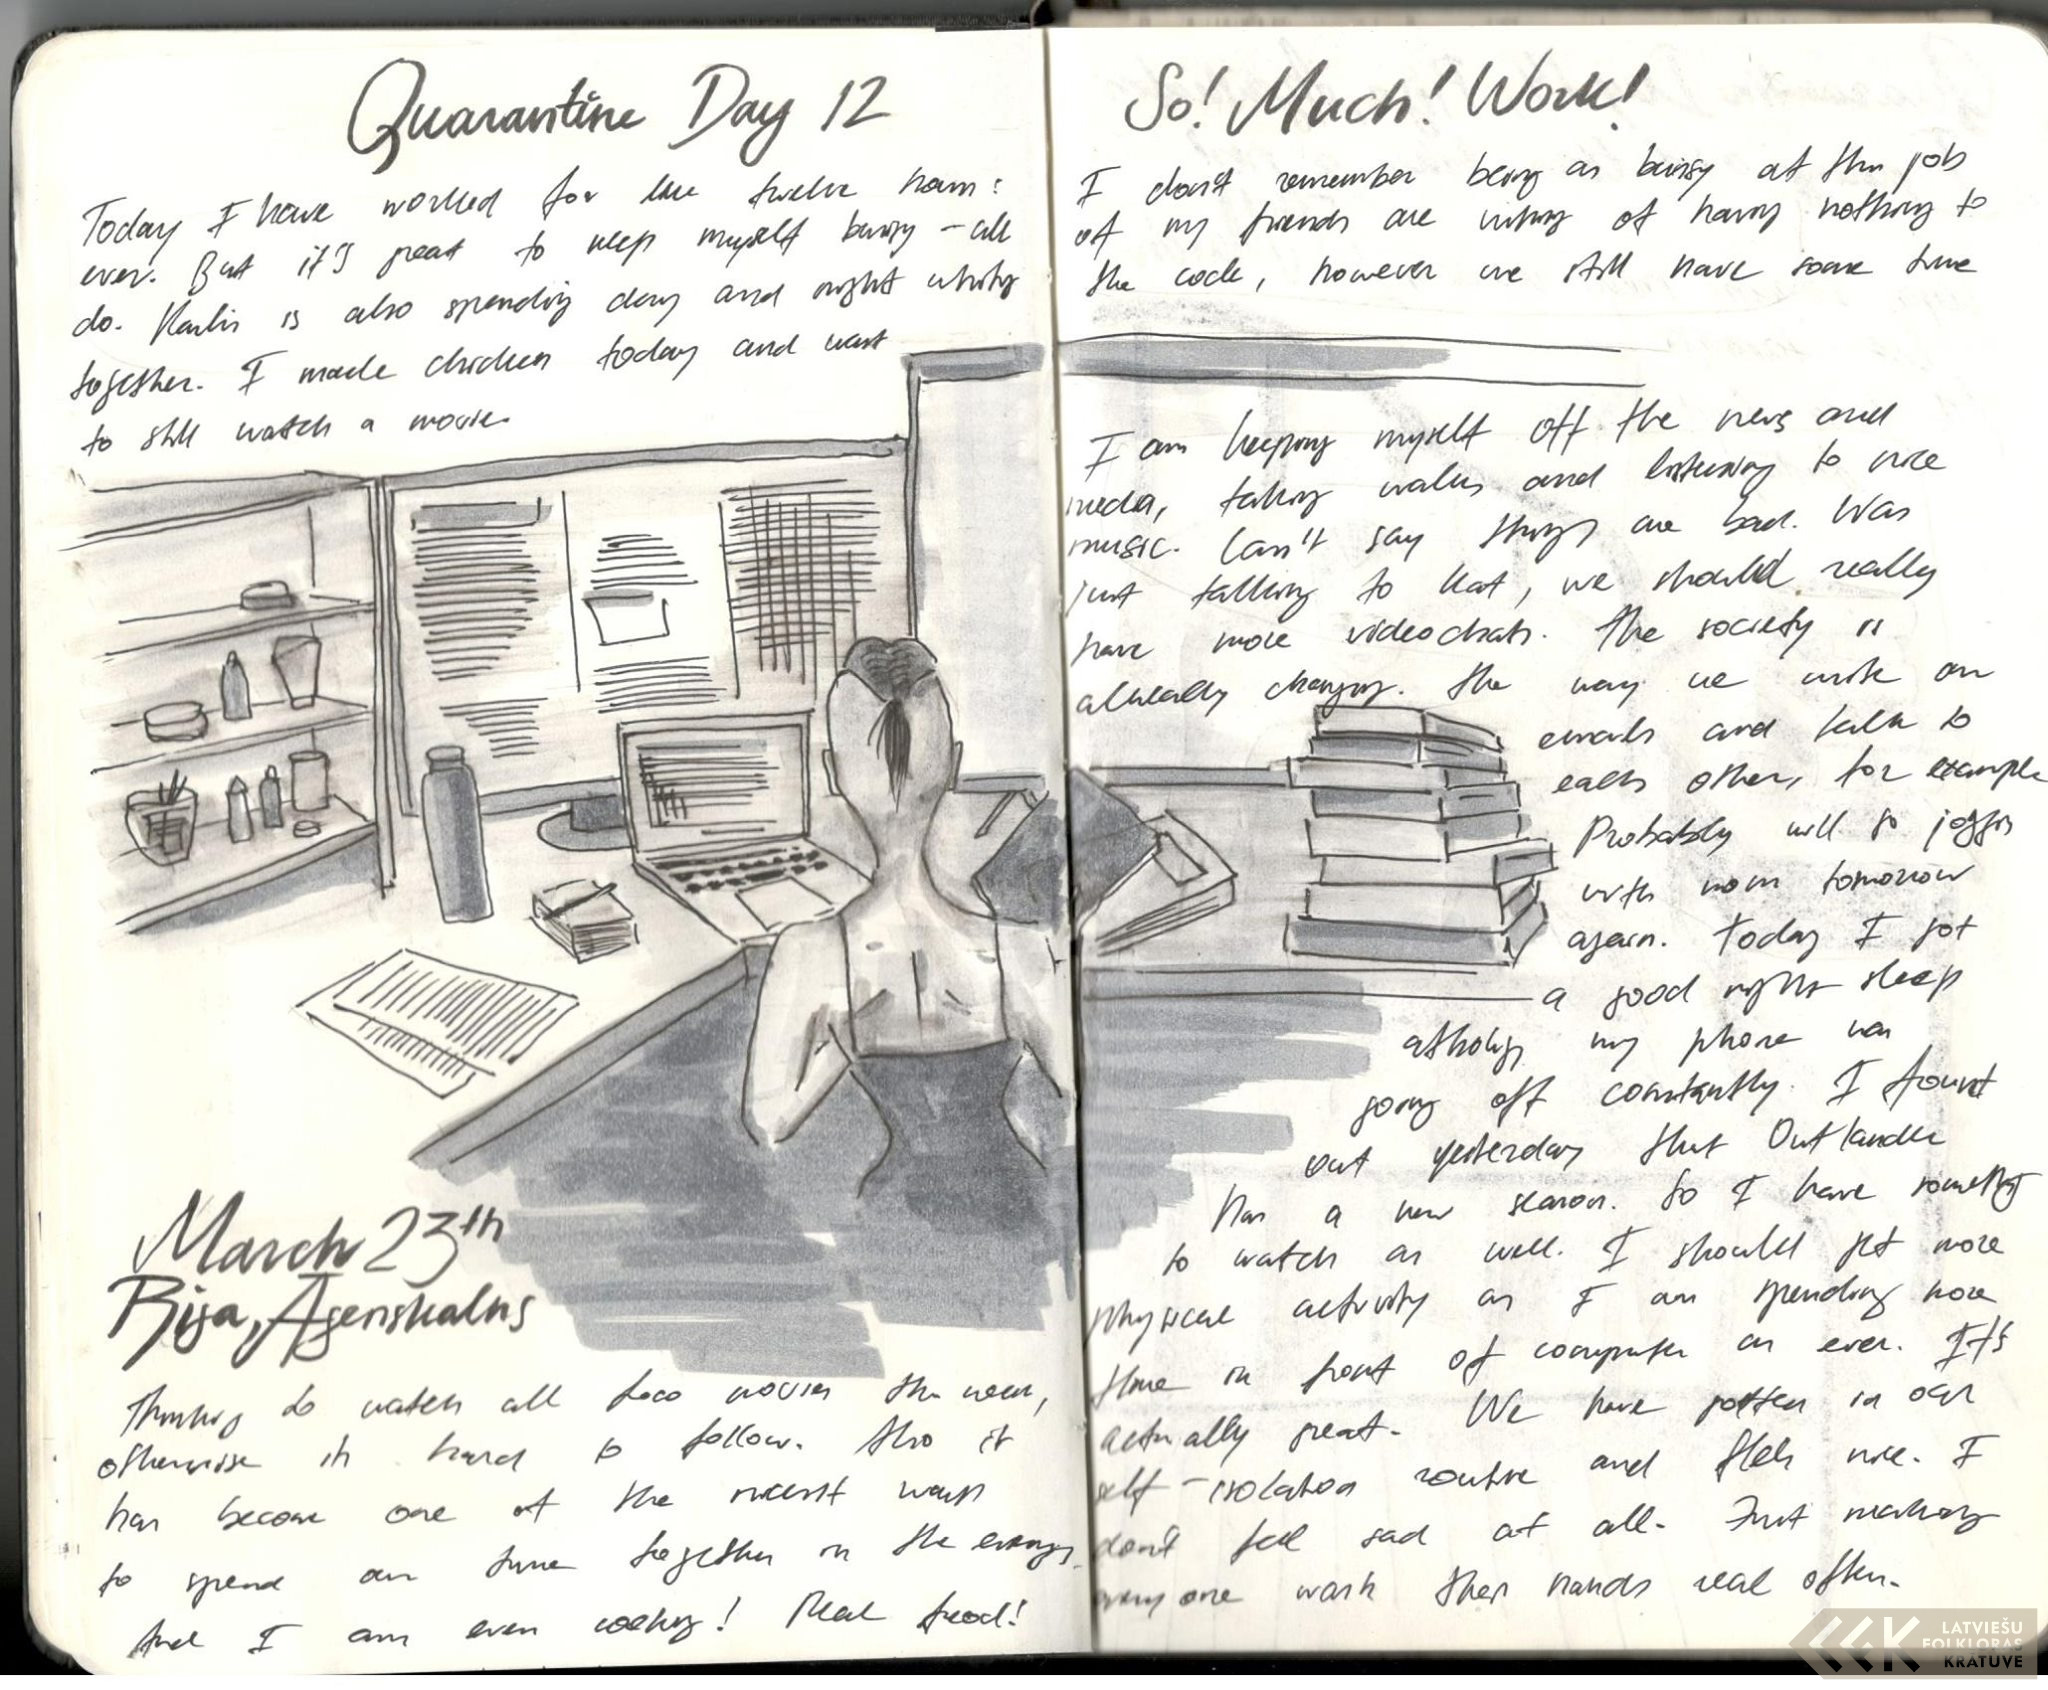 Quarantine Day 12
So! Much! Work!
Today I have worked for like twelve hours!
I don't remember being as busy at this job
ever. But it's great to keep myself busy – all
of my friends are whining of having nothing to
do. Karlis is also spending day and night writing
the code, however we still have some time
together. I made chicken today and want
to still watch a movie.
March 23th
Riga, Āgenskalns
Thinking to watch all movies this week,
otherwise its hard to follow. Also it
has become one of the nicest ways
to spend our time together in the evenings.
And I am even cooking! Real food!
I am keeping myself off the news and
media, taking walks and listening to nice
music. Can't say things are bad. Was
just talking to Kat, we should really
have more videochats. The society is
already changing. The way we write our
emails and talk to
each other, for example
Probably will go joggin
with mom tomorrow
again. Today I got
a good nights sleep
althoug my phone was
going off constantly. I found
out yesterday that Outlander
has a new season. So I have something
to watch as well. I should get more
physical activity as I am spending more
time in front of computer as ever. It's
actually great. We have gotten in our
self-isolation routine and feels nice. I
don't feel sad at all. Just making
everyone wash their hands real often.
LATVIEŠU
FOLKLORAS
KRĀTUVE